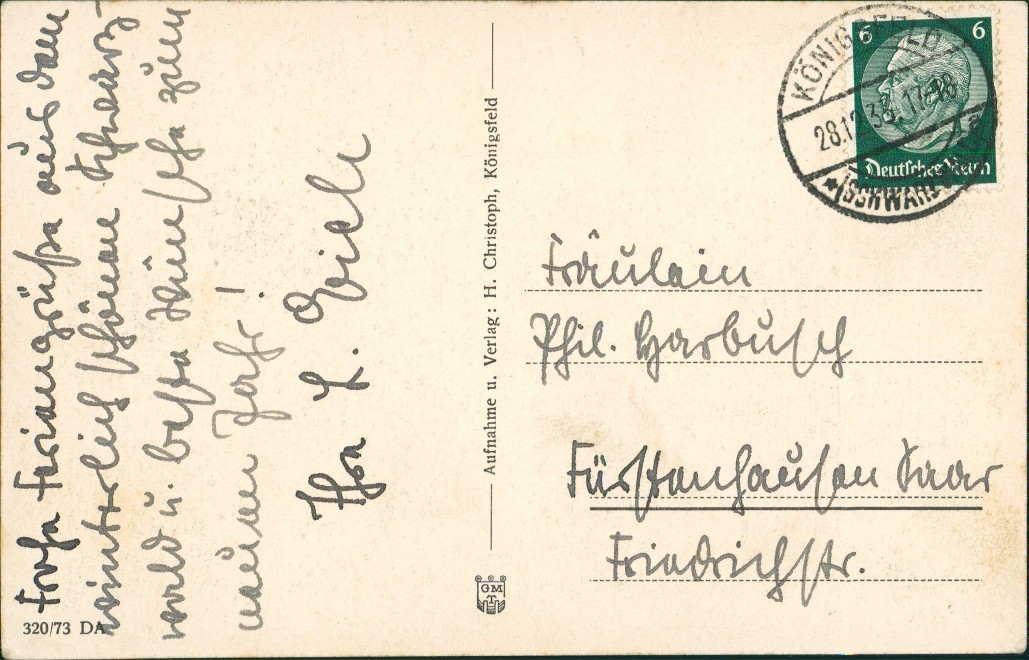 Frohe Feriengrüße aus dem
winterlich schönen Schwarz-
wald u. beste Wünsche zum
neuen Jahr!
Ihr L.
Aufnahme u. Verlag: H. Christoph, Königsfeld
320/73 DA
GMT
KÖNIGSFELD
28.12.35.17-18
(SCHWARZWALD)
6 6
Deutsches Reich
Fräulein
Phil. Harbusch
Fürstenhausen Saar
Friedrichstr.